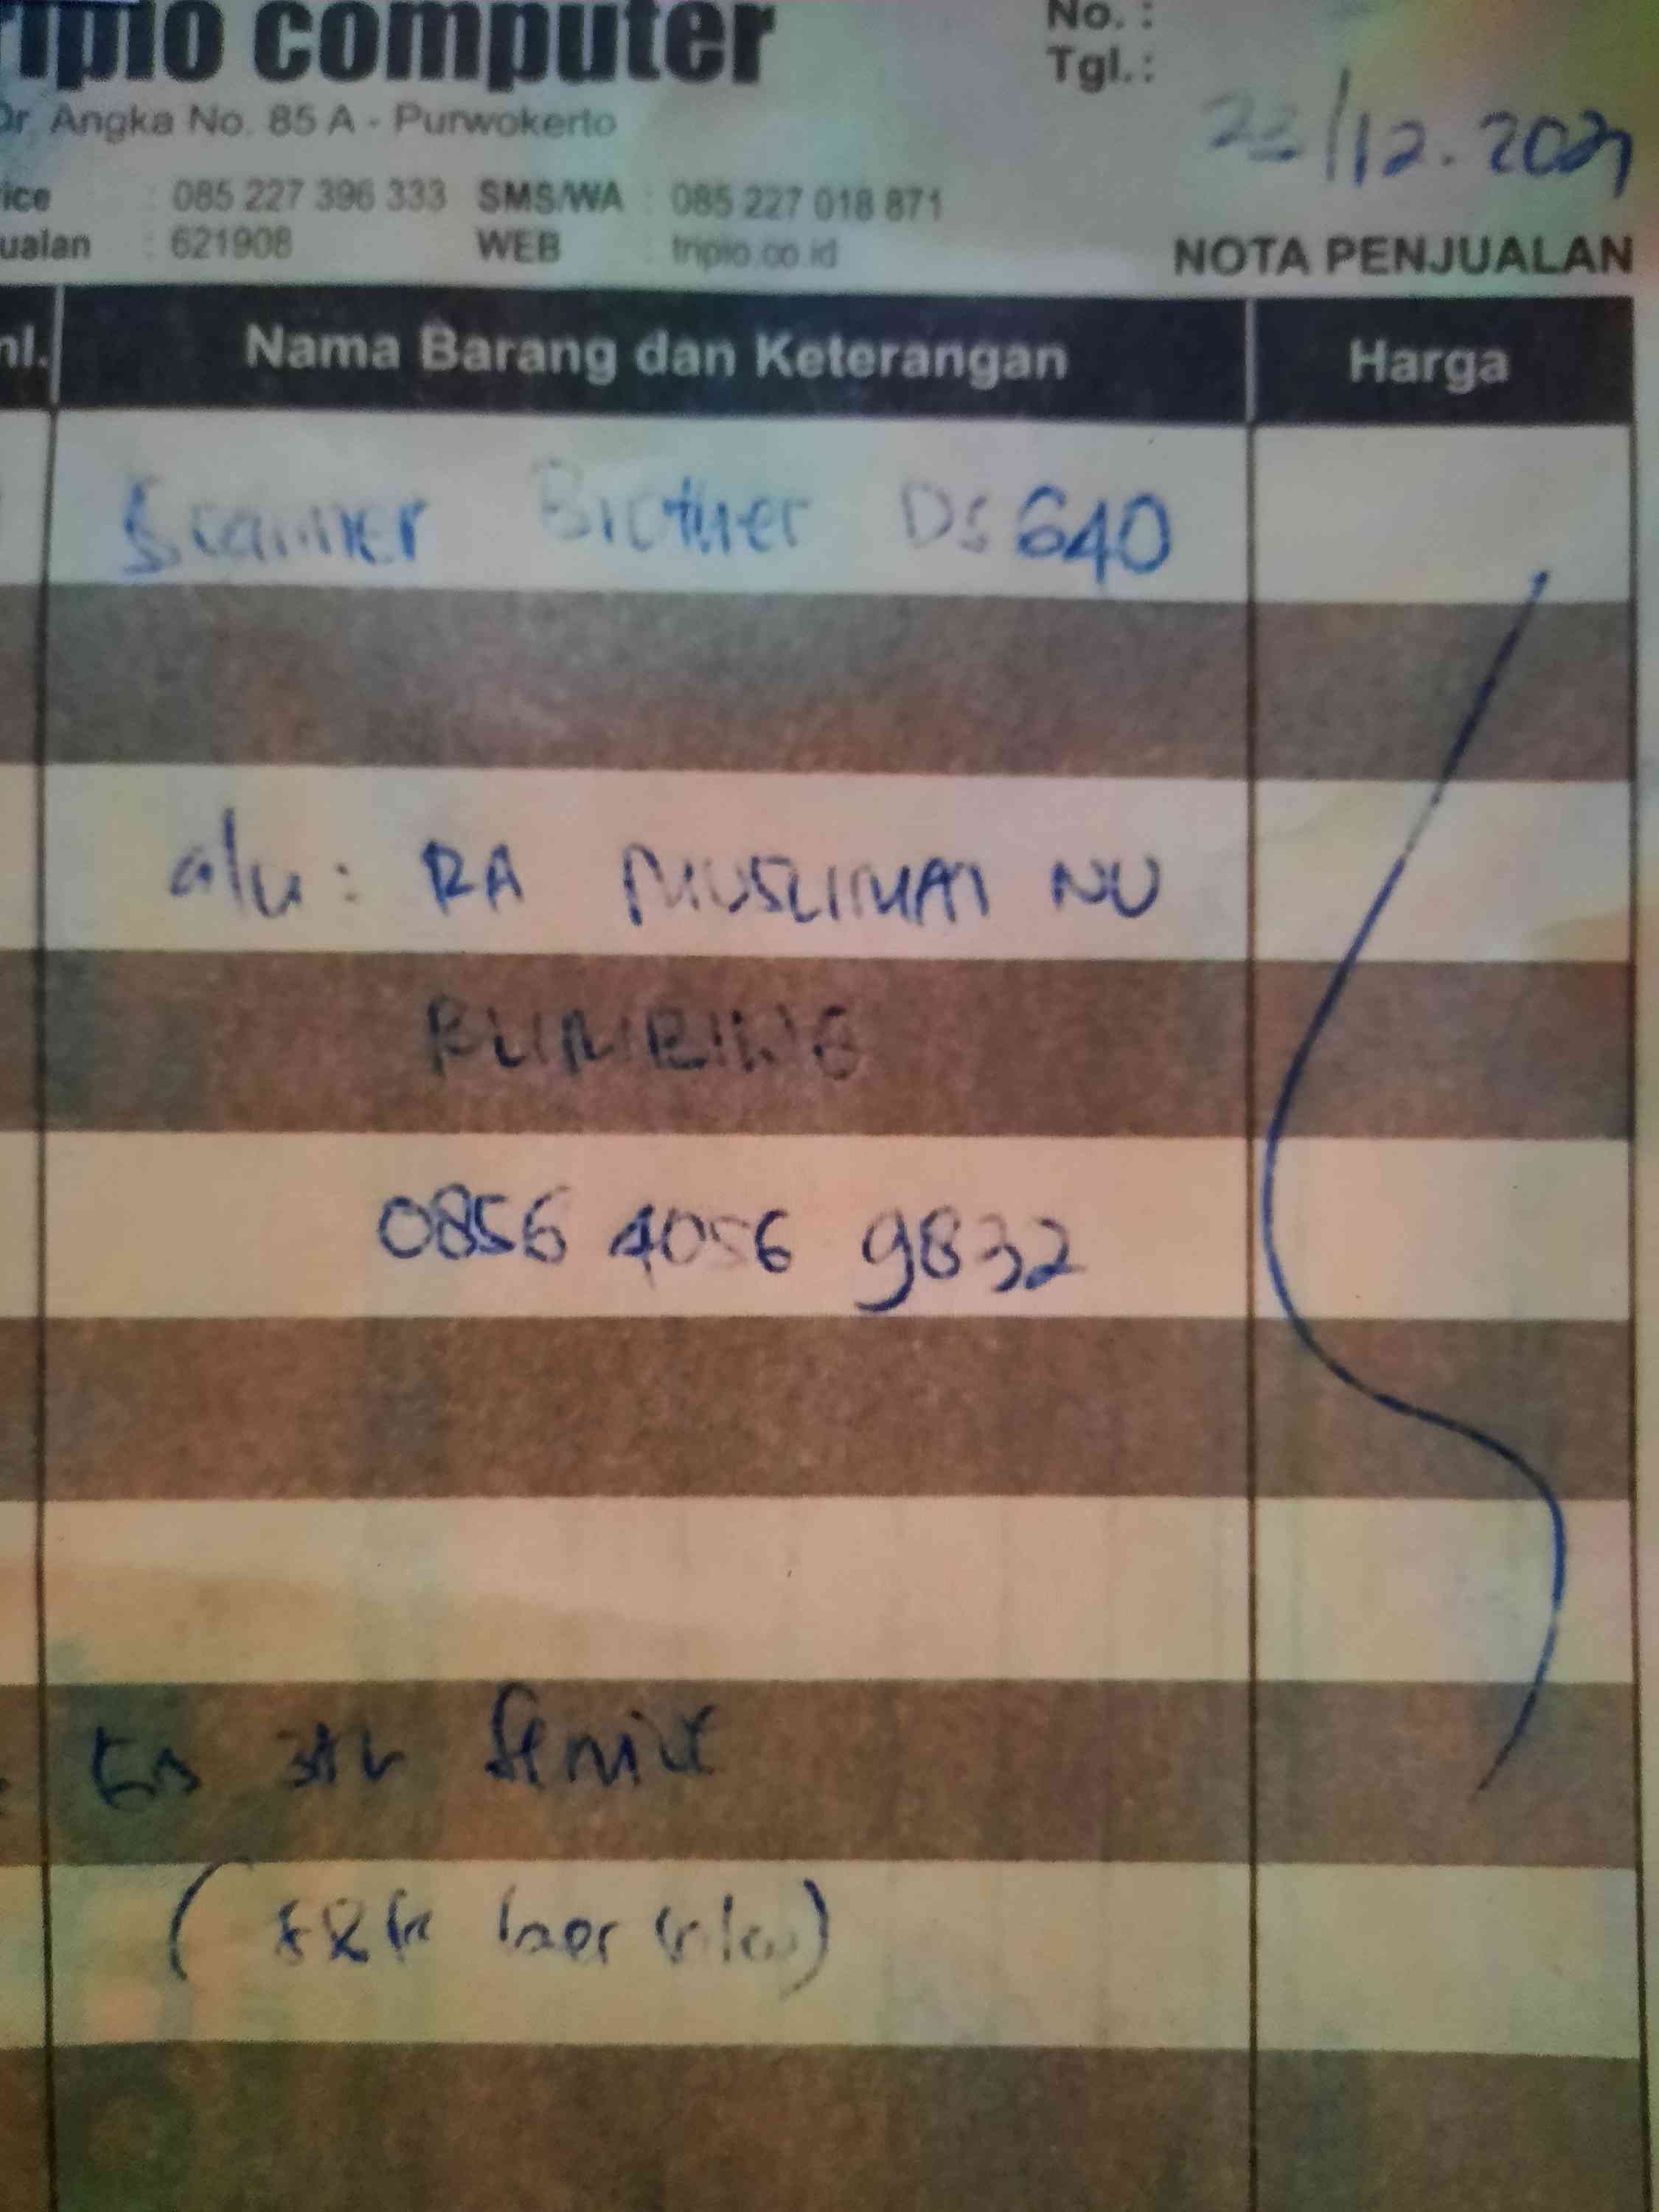 riplo computer
No. :
Tgl. :
Dr. Angka No. 85 A - Purwokerto
23/12.2021
ice : 085 227 396 333 SMS/WA : 085 227 018 871
ualan : 621908 WEB : triplo.co.id
NOTA PENJUALAN
ml. Nama Barang dan Keterangan Harga
Scanner Brother DS 640
a/n : RA MUSLIMAT NU
0856 4056 9832
Service